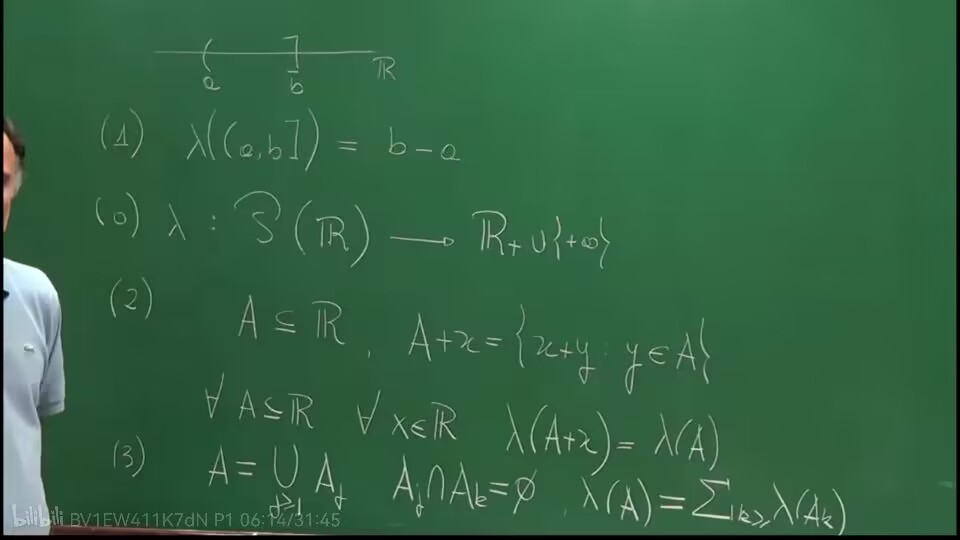 a b ℝ
(1) λ((a,b]) = b-a
(0) λ : 𝒫(ℝ) ⟶ ℝ₊ ∪ {+∞}
(2) A ⊆ ℝ, A+x = {x+y : y ∈ A}
∀ A⊆ℝ ∀ x∈ℝ λ(A+x) = λ(A)
(3) A = ⋃_{j≥1} A_j A_j ∩ A_k = ∅, λ(A) = ∑_{k≥1} λ(A_k)
bilibili BV1EW411K7dN P1 06:14/31:45